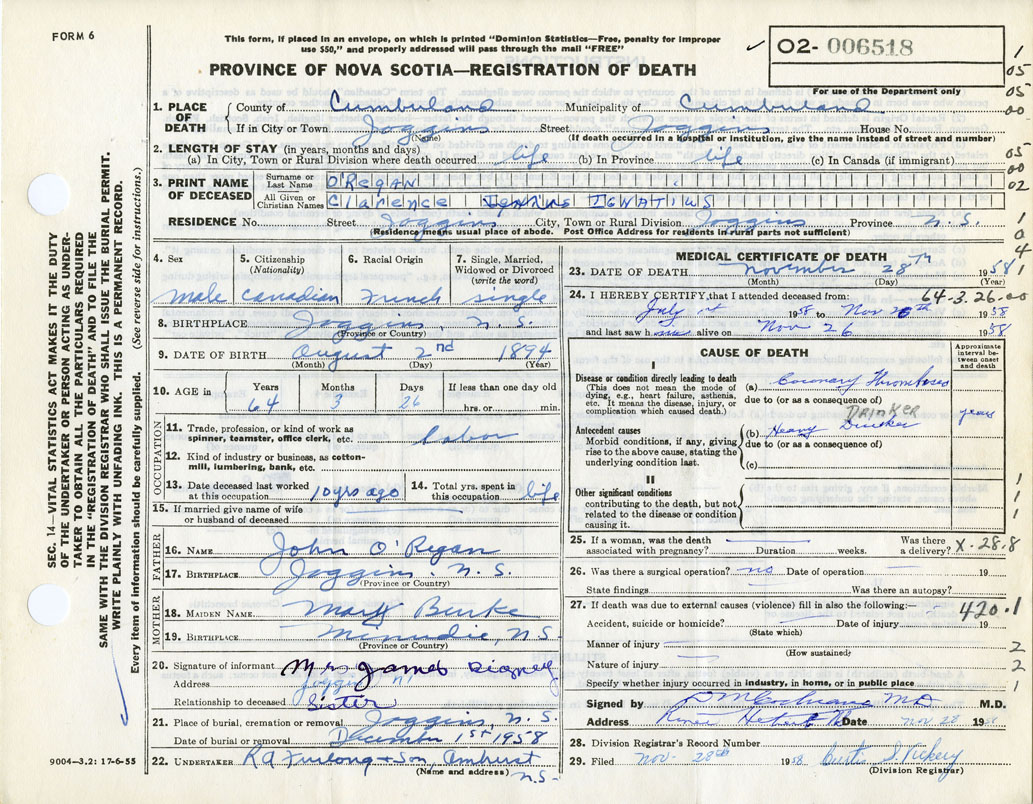 FORM 6
This form, if placed in an envelope, on which is printed "Dominion Statistics—Free, penalty for improper
use $50," and properly addressed will pass through the mail "FREE"
O2- 006518
For use of the Department only
PROVINCE OF NOVA SCOTIA—REGISTRATION OF DEATH
1. PLACE OF DEATH
County of Cumberland Municipality of Cumberland
If in City or Town Joggins Street Joggins House No.
(Name) (If death occurred in a hospital or institution, give the name instead of street and number)
2. LENGTH OF STAY (in years, months and days)
(a) In City, Town or Rural Division where death occurred life (b) In Province life (c) In Canada (if immigrant)
3. PRINT NAME OF DECEASED
Surname or Last Name O'REGAN
All Given or Christian Names Clarence IGNATIUS
RESIDENCE No. Street Joggins City, Town or Rural Division Joggins Province N.S.
(Residence means usual place of abode. Post Office Address for residents in rural parts not sufficient)
4. Sex
male
5. Citizenship (Nationality)
Canadian
6. Racial Origin
French
7. Single, Married, Widowed or Divorced (write the word)
single
8. BIRTHPLACE Joggins, N.S.
(Province or Country)
9. DATE OF BIRTH August 2nd 1894
(Month) (Day) (Year)
10. AGE in Years 64 Months 3 Days 26 If less than one day old hrs. or min.
OCCUPATION
11. Trade, profession, or kind of work as spinner, teamster, office clerk, etc. Labor
12. Kind of industry or business, as cotton-mill, lumbering, bank, etc.
13. Date deceased last worked at this occupation 10 yrs ago
14. Total yrs. spent in this occupation life
15. If married give name of wife or husband of deceased
FATHER
16. NAME John O'Regan
17. BIRTHPLACE Joggins, N.S.
(Province or Country)
MOTHER
18. MAIDEN NAME Mary Burke
19. BIRTHPLACE Minudie, N.S.
(Province or Country)
20. Signature of informant Mrs James Digney
Address Joggins
Relationship to deceased Sister
21. Place of burial, cremation or removal Joggins, N.S.
Date of burial or removal December 1st 1958
22. UNDERTAKER R A Furlong & Son, Amherst
(Name and address) N.S.
9004—3.2: 17-6-55
SEC. 14—VITAL STATISTICS ACT MAKES IT THE DUTY
OF THE UNDERTAKER OR PERSON ACTING AS UNDER-
TAKER TO OBTAIN ALL THE PARTICULARS REQUIRED
IN THE "REGISTRATION OF DEATH" AND TO FILE THE
SAME WITH THE DIVISION REGISTRAR WHO SHALL ISSUE THE BURIAL PERMIT.
WRITE PLAINLY WITH UNFADING INK. THIS IS A PERMANENT RECORD.
Every item of information should be carefully supplied. (See reverse side for instructions.)
MEDICAL CERTIFICATE OF DEATH
23. DATE OF DEATH November 28TH 1958
(Month) (Day) (Year)
24. I HEREBY CERTIFY, that I attended deceased from: 64-3.26-00
July 1st 1958 to Nov 1958
and last saw h alive on Nov 26 1958
CAUSE OF DEATH
Approximate interval between onset and death
I
Disease or condition directly leading to death
(This does not mean the mode of dying, e.g., heart failure, asthenia, etc. It means the disease, injury, or complication which caused death.)
(a) Coronary Thrombosis
due to (or as a consequence of)
years
DRINKER
Antecedent causes
Morbid conditions, if any, giving rise to the above cause, stating the underlying condition last.
(b) Heavy Drinker
due to (or as a consequence of)
(c)
II
Other significant conditions
contributing to the death, but not related to the disease or condition causing it.
25. If a woman, was the death associated with pregnancy? Duration weeks. Was there a delivery? X-28.8
26. Was there a surgical operation? no Date of operation 19
State findings Was there an autopsy?
27. If death was due to external causes (violence) fill in also the following:— 420.1
Accident, suicide or homicide? Date of injury 19
(State which)
Manner of injury
(How sustained)
Nature of injury
Specify whether injury occurred in industry, in home, or in public place
Signed by Cochrane MD M.D.
Address River Hebert Date Nov 28 1958
28. Division Registrar's Record Number
29. Filed Nov. 28th 1958 Curtis S. Vickery
(Division Registrar)
1
05
05
00
05
00
02
1
0
4
1
1
1
1
2
2
1